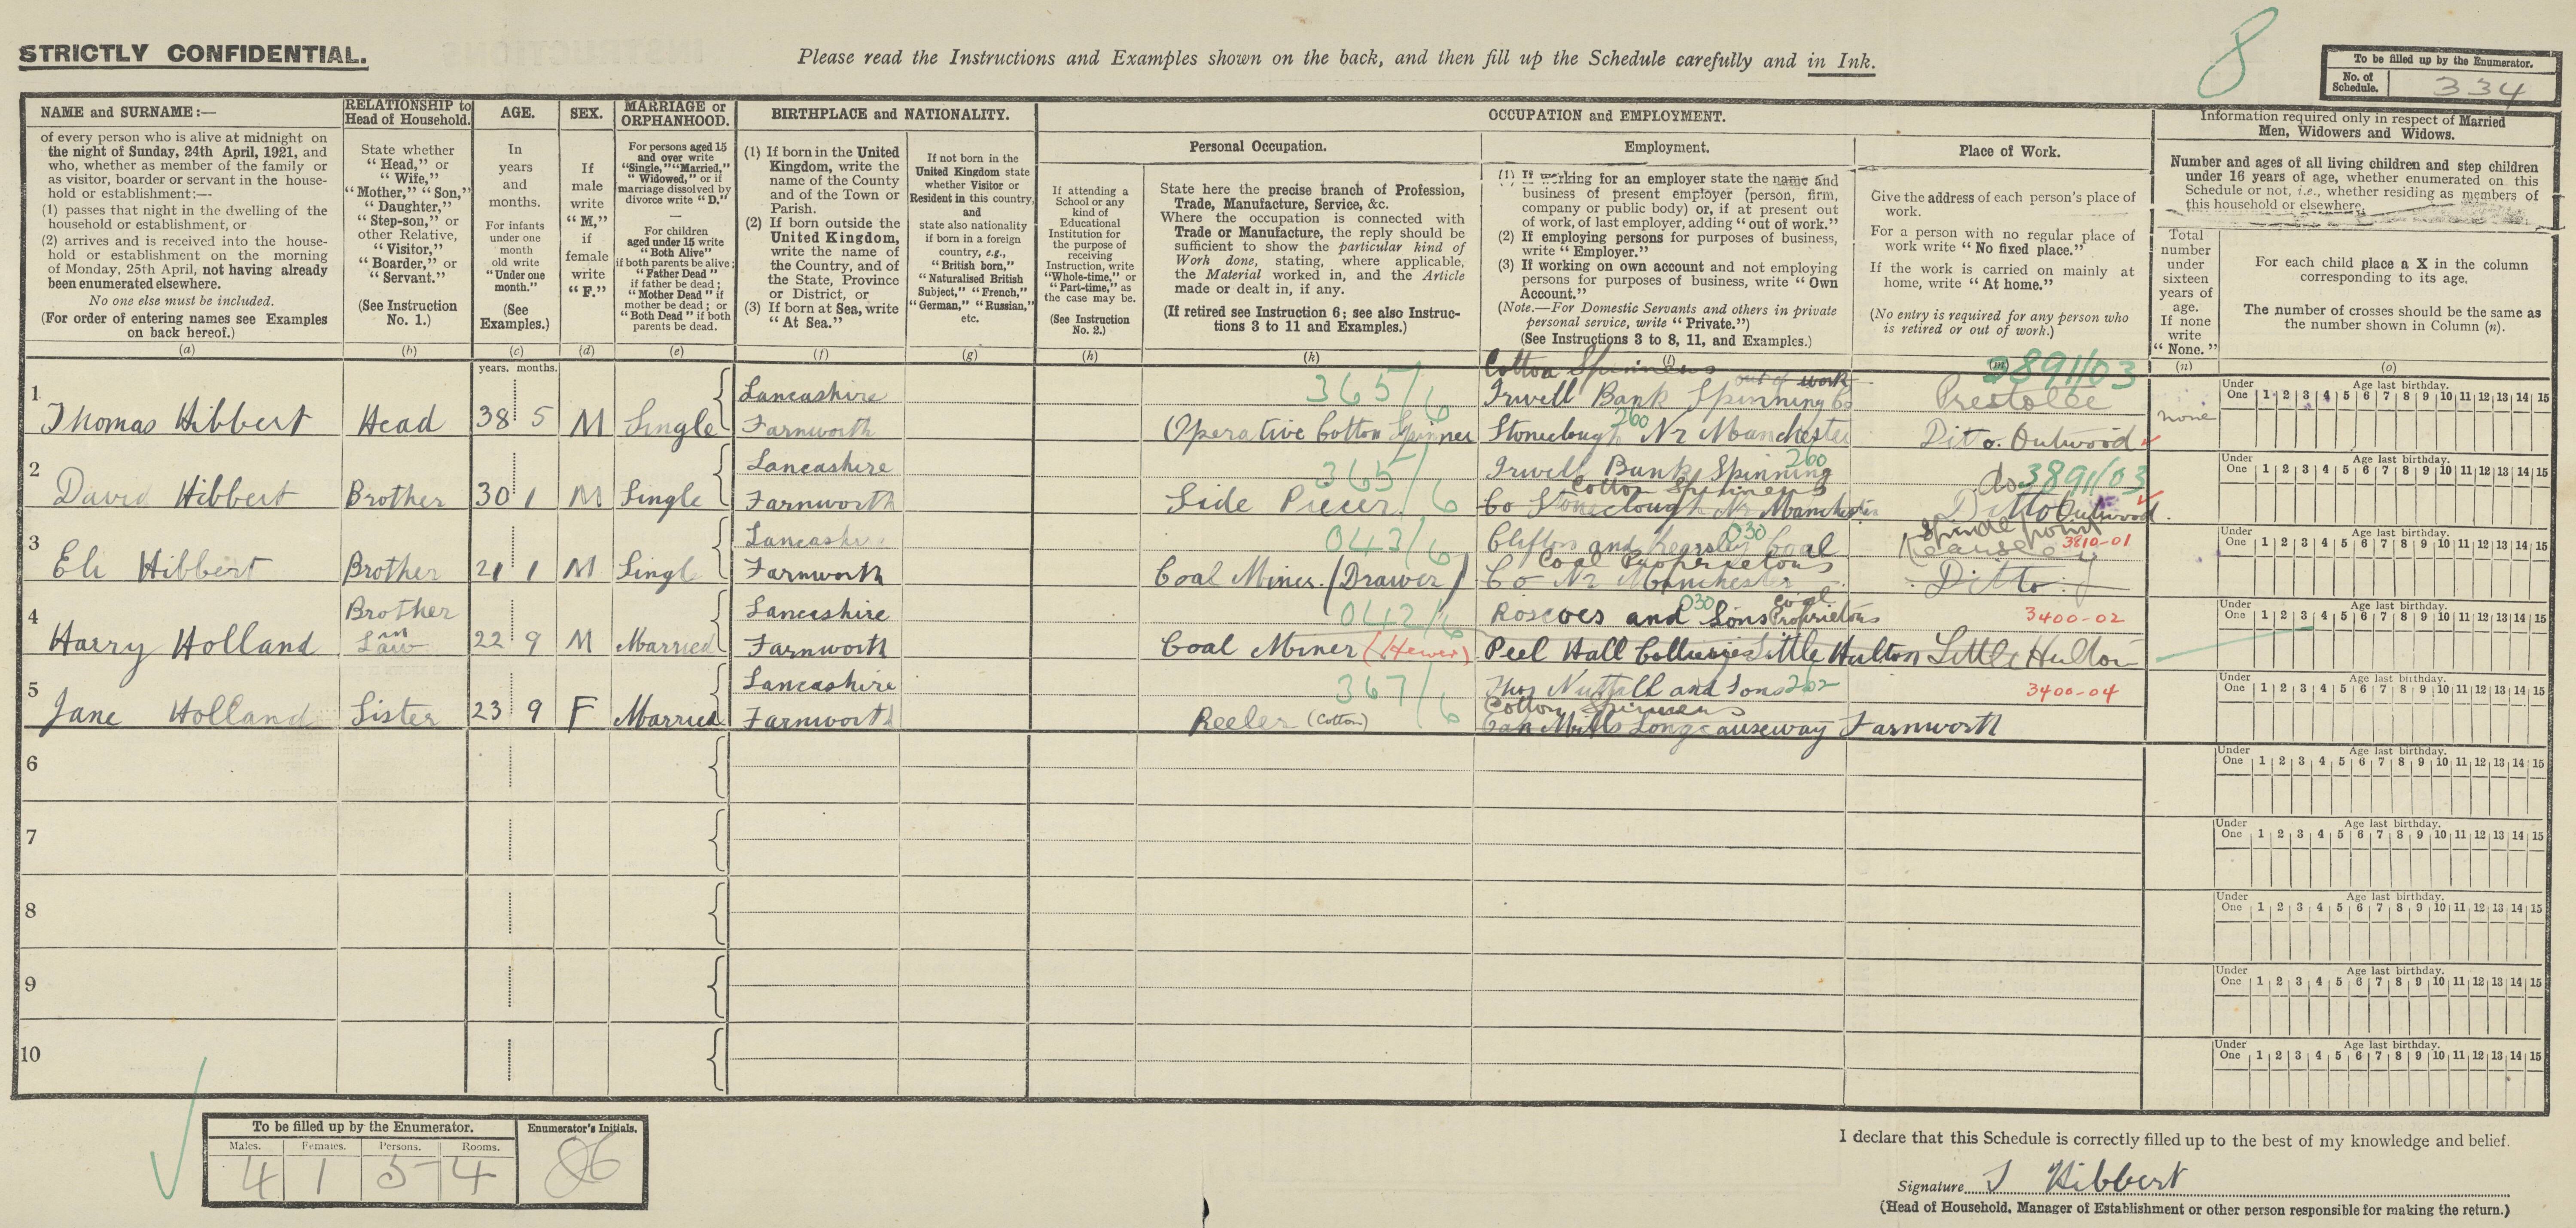 STRICTLY CONFIDENTIAL.
Please read the Instructions and Examples shown on the back, and then fill up the Schedule carefully and in Ink.
8
To be filled up by the Enumerator.
No. of Schedule.
334
NAME and SURNAME:—
of every person who is alive at midnight on
the night of Sunday, 24th April, 1921, and
who, whether as member of the family or
as visitor, boarder or servant in the house-
hold or establishment:—
(1) passes that night in the dwelling of the
household or establishment, or
(2) arrives and is received into the house-
hold or establishment on the morning
of Monday, 25th April, not having already
been enumerated elsewhere.
No one else must be included.
(For order of entering names see Examples
on back hereof.)
(a)
RELATIONSHIP to
Head of Household.
State whether
"Head," or
"Wife,"
"Mother," "Son,"
"Daughter,"
"Step-son," or
other Relative,
"Visitor,"
"Boarder," or
"Servant."
(See Instruction
No. 1.)
(b)
AGE.
In
years
and
months.
For infants
under one
month
old write
"Under one
month."
(See
Examples.)
(c)
SEX.
If
male
write
"M,"
if
female
write
"F."
(d)
MARRIAGE or
ORPHANHOOD.
For persons aged 15
and over write
"Single," "Married,"
"Widowed," or if
marriage dissolved by
divorce write "D."
—
For children
aged under 15 write
"Both Alive"
if both parents be alive;
"Father Dead"
if father be dead;
"Mother Dead" if
mother be dead; or
"Both Dead" if both
parents be dead.
(e)
BIRTHPLACE and NATIONALITY.
(1) If born in the United
Kingdom, write the
name of the County
and of the Town or
Parish.
(2) If born outside the
United Kingdom,
write the name of
the Country, and of
the State, Province
or District, or
(3) If born at Sea, write
"At Sea."
(f)
If not born in the
United Kingdom state
whether Visitor or
Resident in this country,
and
state also nationality
if born in a foreign
country, e.g.,
"British born,"
"Naturalised British
Subject," "French,"
"German," "Russian,"
etc.
(g)
OCCUPATION and EMPLOYMENT.
Personal Occupation.
If attending a
School or any
kind of
Educational
Institution for
the purpose of
receiving
Instruction, write
"Whole-time," or
"Part-time," as
the case may be.
(See Instruction
No. 2.)
(h)
State here the precise branch of Profession,
Trade, Manufacture, Service, &c.
Where the occupation is connected with
Trade or Manufacture, the reply should be
sufficient to show the particular kind of
Work done, stating, where applicable,
the Material worked in, and the Article
made or dealt in, if any.
(If retired see Instruction 6; see also Instruc-
tions 3 to 11 and Examples.)
(k)
Employment.
(1) If working for an employer state the name and
business of present employer (person, firm,
company or public body) or, if at present out
of work, of last employer, adding "out of work."
(2) If employing persons for purposes of business,
write "Employer."
(3) If working on own account and not employing
persons for purposes of business, write "Own
Account."
(Note.—For Domestic Servants and others in private
personal service, write "Private.")
(See Instructions 3 to 8, 11, and Examples.)
(l)
Place of Work.
Give the address of each person's place of
work.
For a person with no regular place of
work write "No fixed place."
If the work is carried on mainly at
home, write "At home."
(No entry is required for any person who
is retired or out of work.)
(m)
Information required only in respect of Married
Men, Widowers and Widows.
Number and ages of all living children and step children
under 16 years of age, whether enumerated on this
Schedule or not, i.e., whether residing as members of
this household or elsewhere.
Total
number
under
sixteen
years of
age.
If none
write
"None."
(n)
For each child place a X in the column
corresponding to its age.
The number of crosses should be the same as
the number shown in Column (n).
(o)
years. months.
Cotton Spinners
out of work
1 Lancashire 365/6 Irwell Bank Spinning Co Prestolee 3891/03
Thomas Hibbert Head 38 5 M Single Farnworth Operative Cotton Spinner Stoneclough Nr Manchester 260 Ditto. Outwood none
Under One Age last birthday. 1 2 3 4 5 6 7 8 9 10 11 12 13 14 15
2 Lancashire 365/6 Irwell Bank Spinning 260 do 3891/03
Cotton Spinners
David Hibbert Brother 30 1 M Single Farnworth Side Piecer Co Stoneclough Nr Manchester Ditto Outwood
Under One Age last birthday. 1 2 3 4 5 6 7 8 9 10 11 12 13 14 15
3 Lancashire 043/6 Clifton and Kearsley Coal 030 Spindle point Kearsley 3810-01
Coal Proprietors
Eli Hibbert Brother 21 1 M Single Farnworth Coal Miner (Drawer) Co Nr Manchester Ditto
Under One Age last birthday. 1 2 3 4 5 6 7 8 9 10 11 12 13 14 15
4 Brother Lancashire 042/6 Roscoes and Sons 030 Coal Proprietors 3400-02
Harry Holland in Law 22 9 M Married Farnworth Coal Miner (Hewer) Peel Hall Collieries Little Hulton Little Hulton
Under One Age last birthday. 1 2 3 4 5 6 7 8 9 10 11 12 13 14 15
5 Lancashire 367/6 Thos Nuttall and Sons 262 3400-04
Cotton Spinners
Jane Holland Sister 23 9 F Married Farnworth Reeler (Cotton) Oak Mills Longcauseway Farnworth
Under One Age last birthday. 1 2 3 4 5 6 7 8 9 10 11 12 13 14 15
6
Under One Age last birthday. 1 2 3 4 5 6 7 8 9 10 11 12 13 14 15
7
Under One Age last birthday. 1 2 3 4 5 6 7 8 9 10 11 12 13 14 15
8
Under One Age last birthday. 1 2 3 4 5 6 7 8 9 10 11 12 13 14 15
9
Under One Age last birthday. 1 2 3 4 5 6 7 8 9 10 11 12 13 14 15
10
Under One Age last birthday. 1 2 3 4 5 6 7 8 9 10 11 12 13 14 15
To be filled up by the Enumerator.
Enumerator's Initials.
Males. Females. Persons. Rooms.
4 1 5 4
I declare that this Schedule is correctly filled up to the best of my knowledge and belief.
Signature T Hibbert
(Head of Household, Manager of Establishment or other person responsible for making the return.)